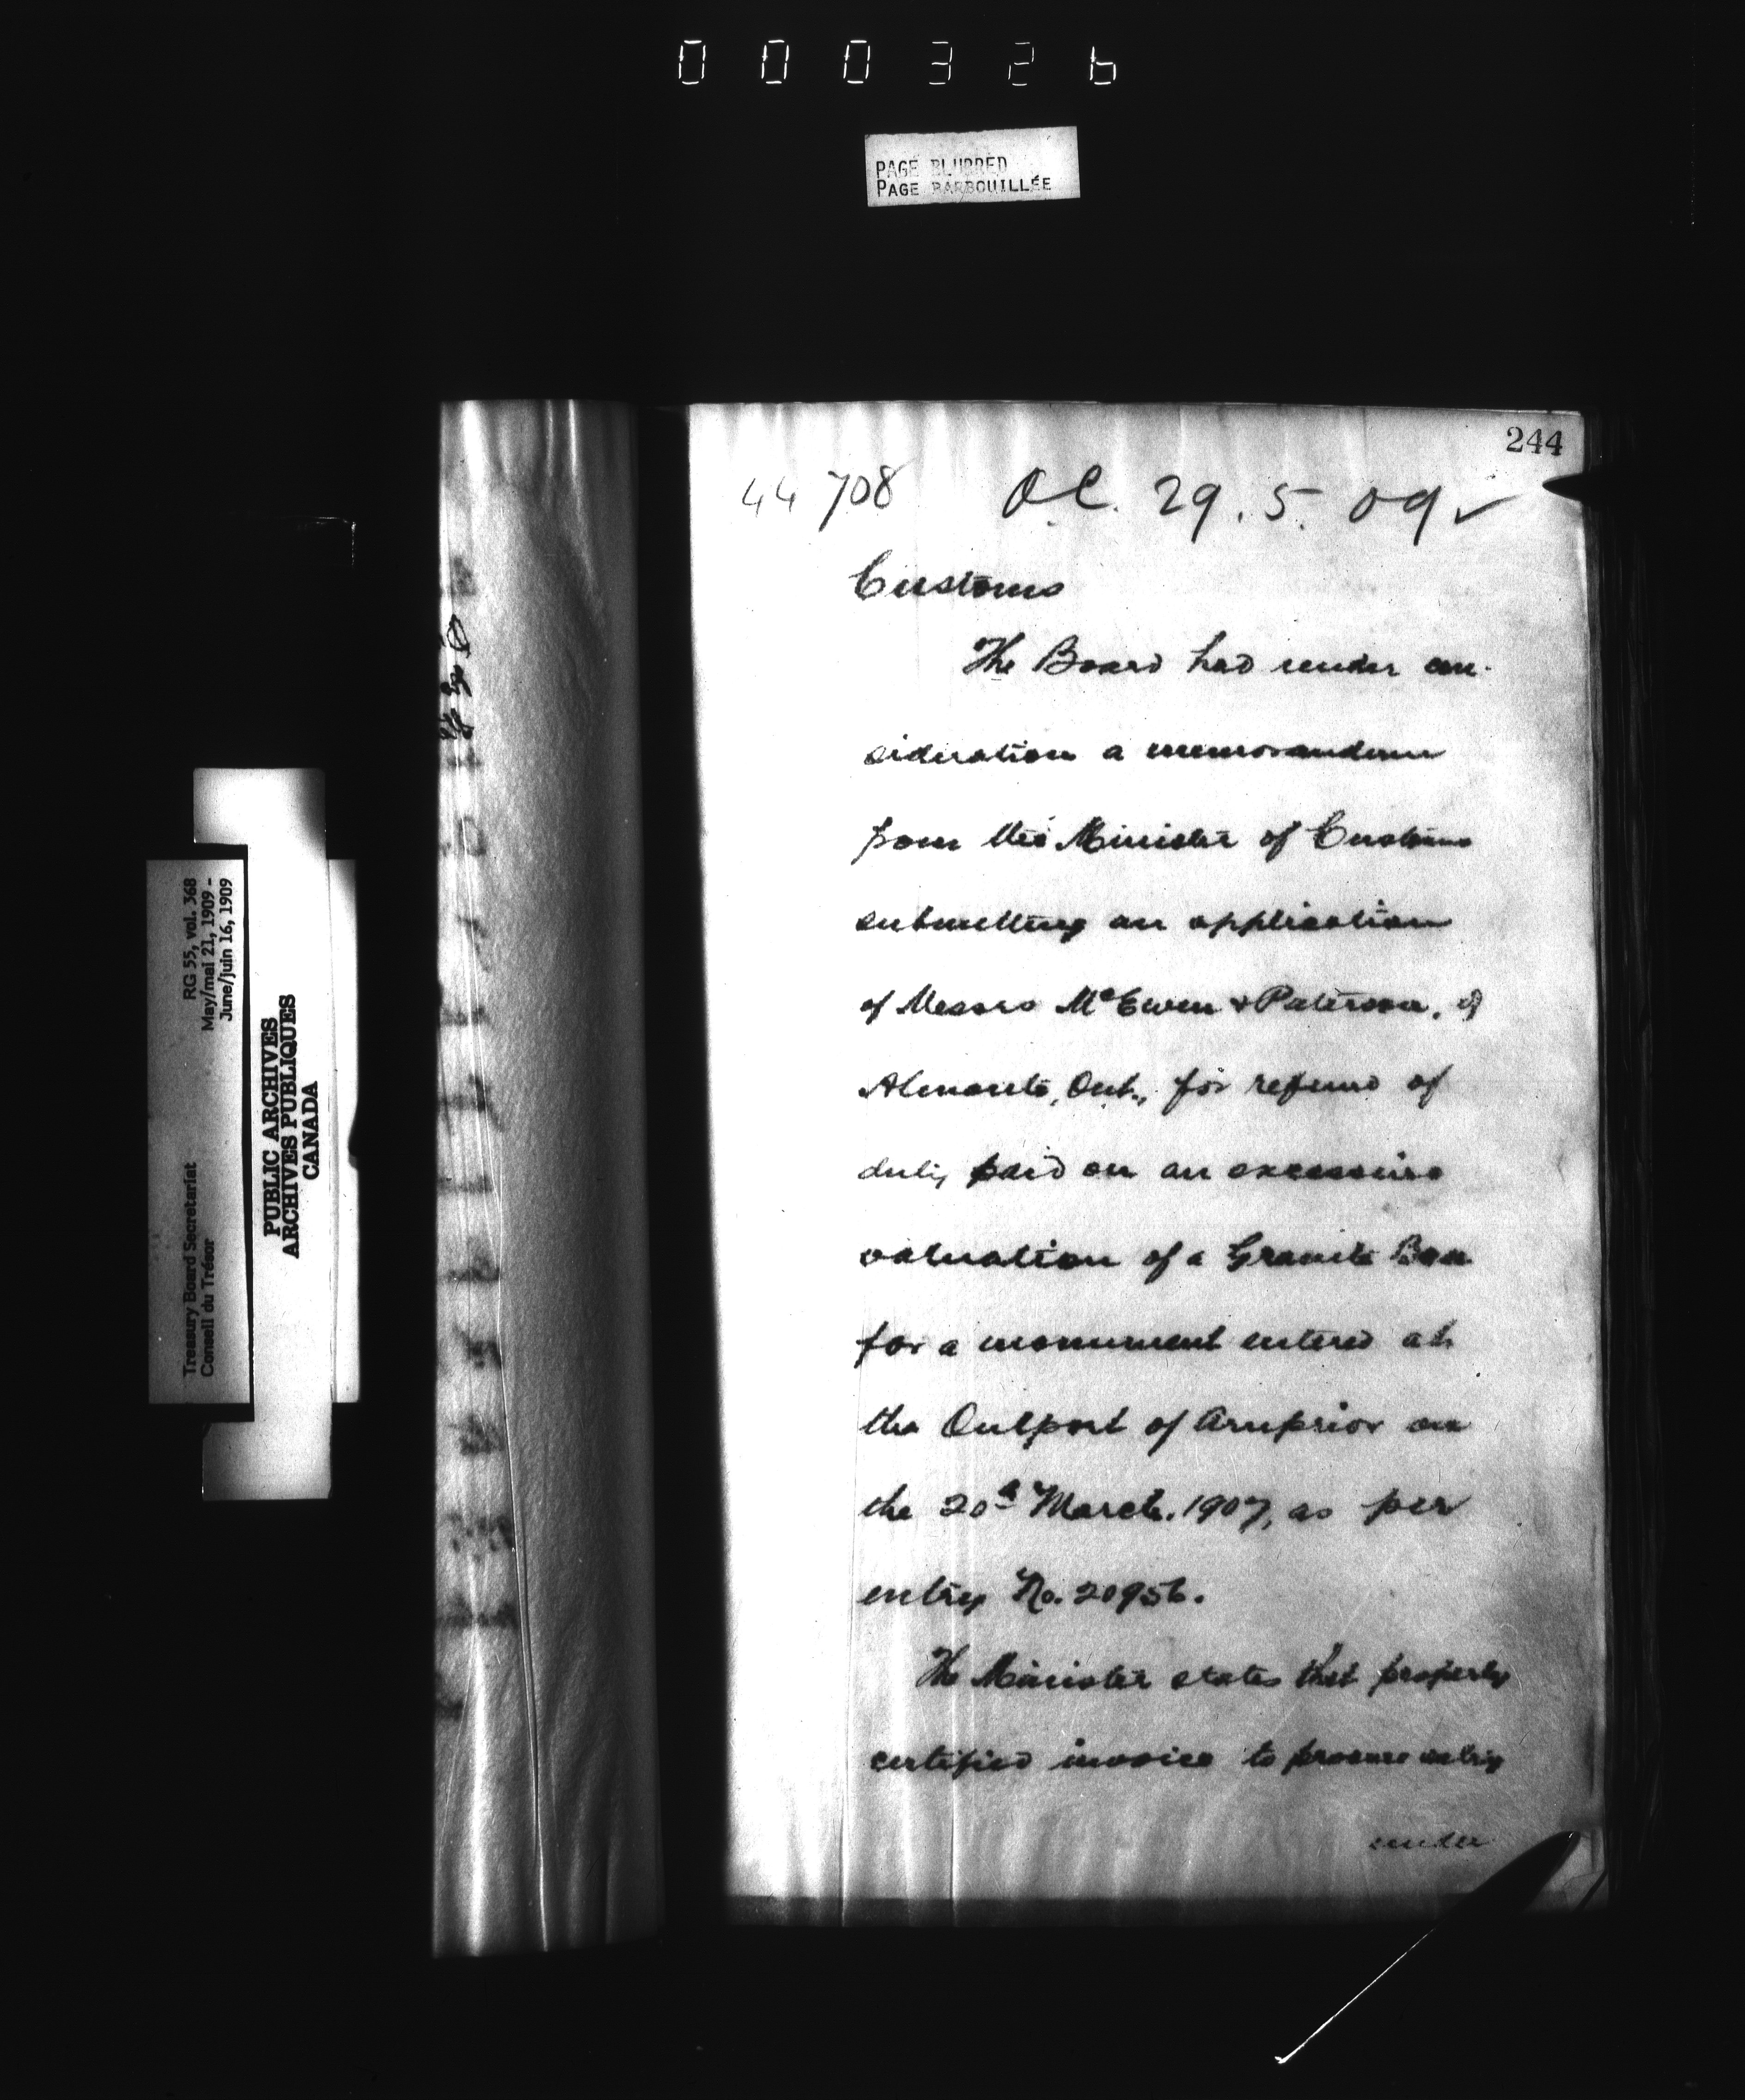 000326
PAGE BLURRED
PAGE BARBOUILLÉE
244
44708 O.C. 29.5.09 ✓
Customs
The Board had under con-
sideration a memorandum
from the Minister of Customs
submitting an application
of Messrs McEwen & Paterson, of
Almonte, Ont., for refund of
duty paid on an excessive
valuation of a Granite
for a monument entered at
the Outport of Arnprior on
the 20th March, 1907, as per
entry No. 20956.
The Minister states that properly
certified invoice to procure entry
under
RG 55, vol. 368
May/mai 21, 1909 -
June/juin 16, 1909
Treasury Board Secretariat
Conseil du Trésor
PUBLIC ARCHIVES
ARCHIVES PUBLIQUES
CANADA